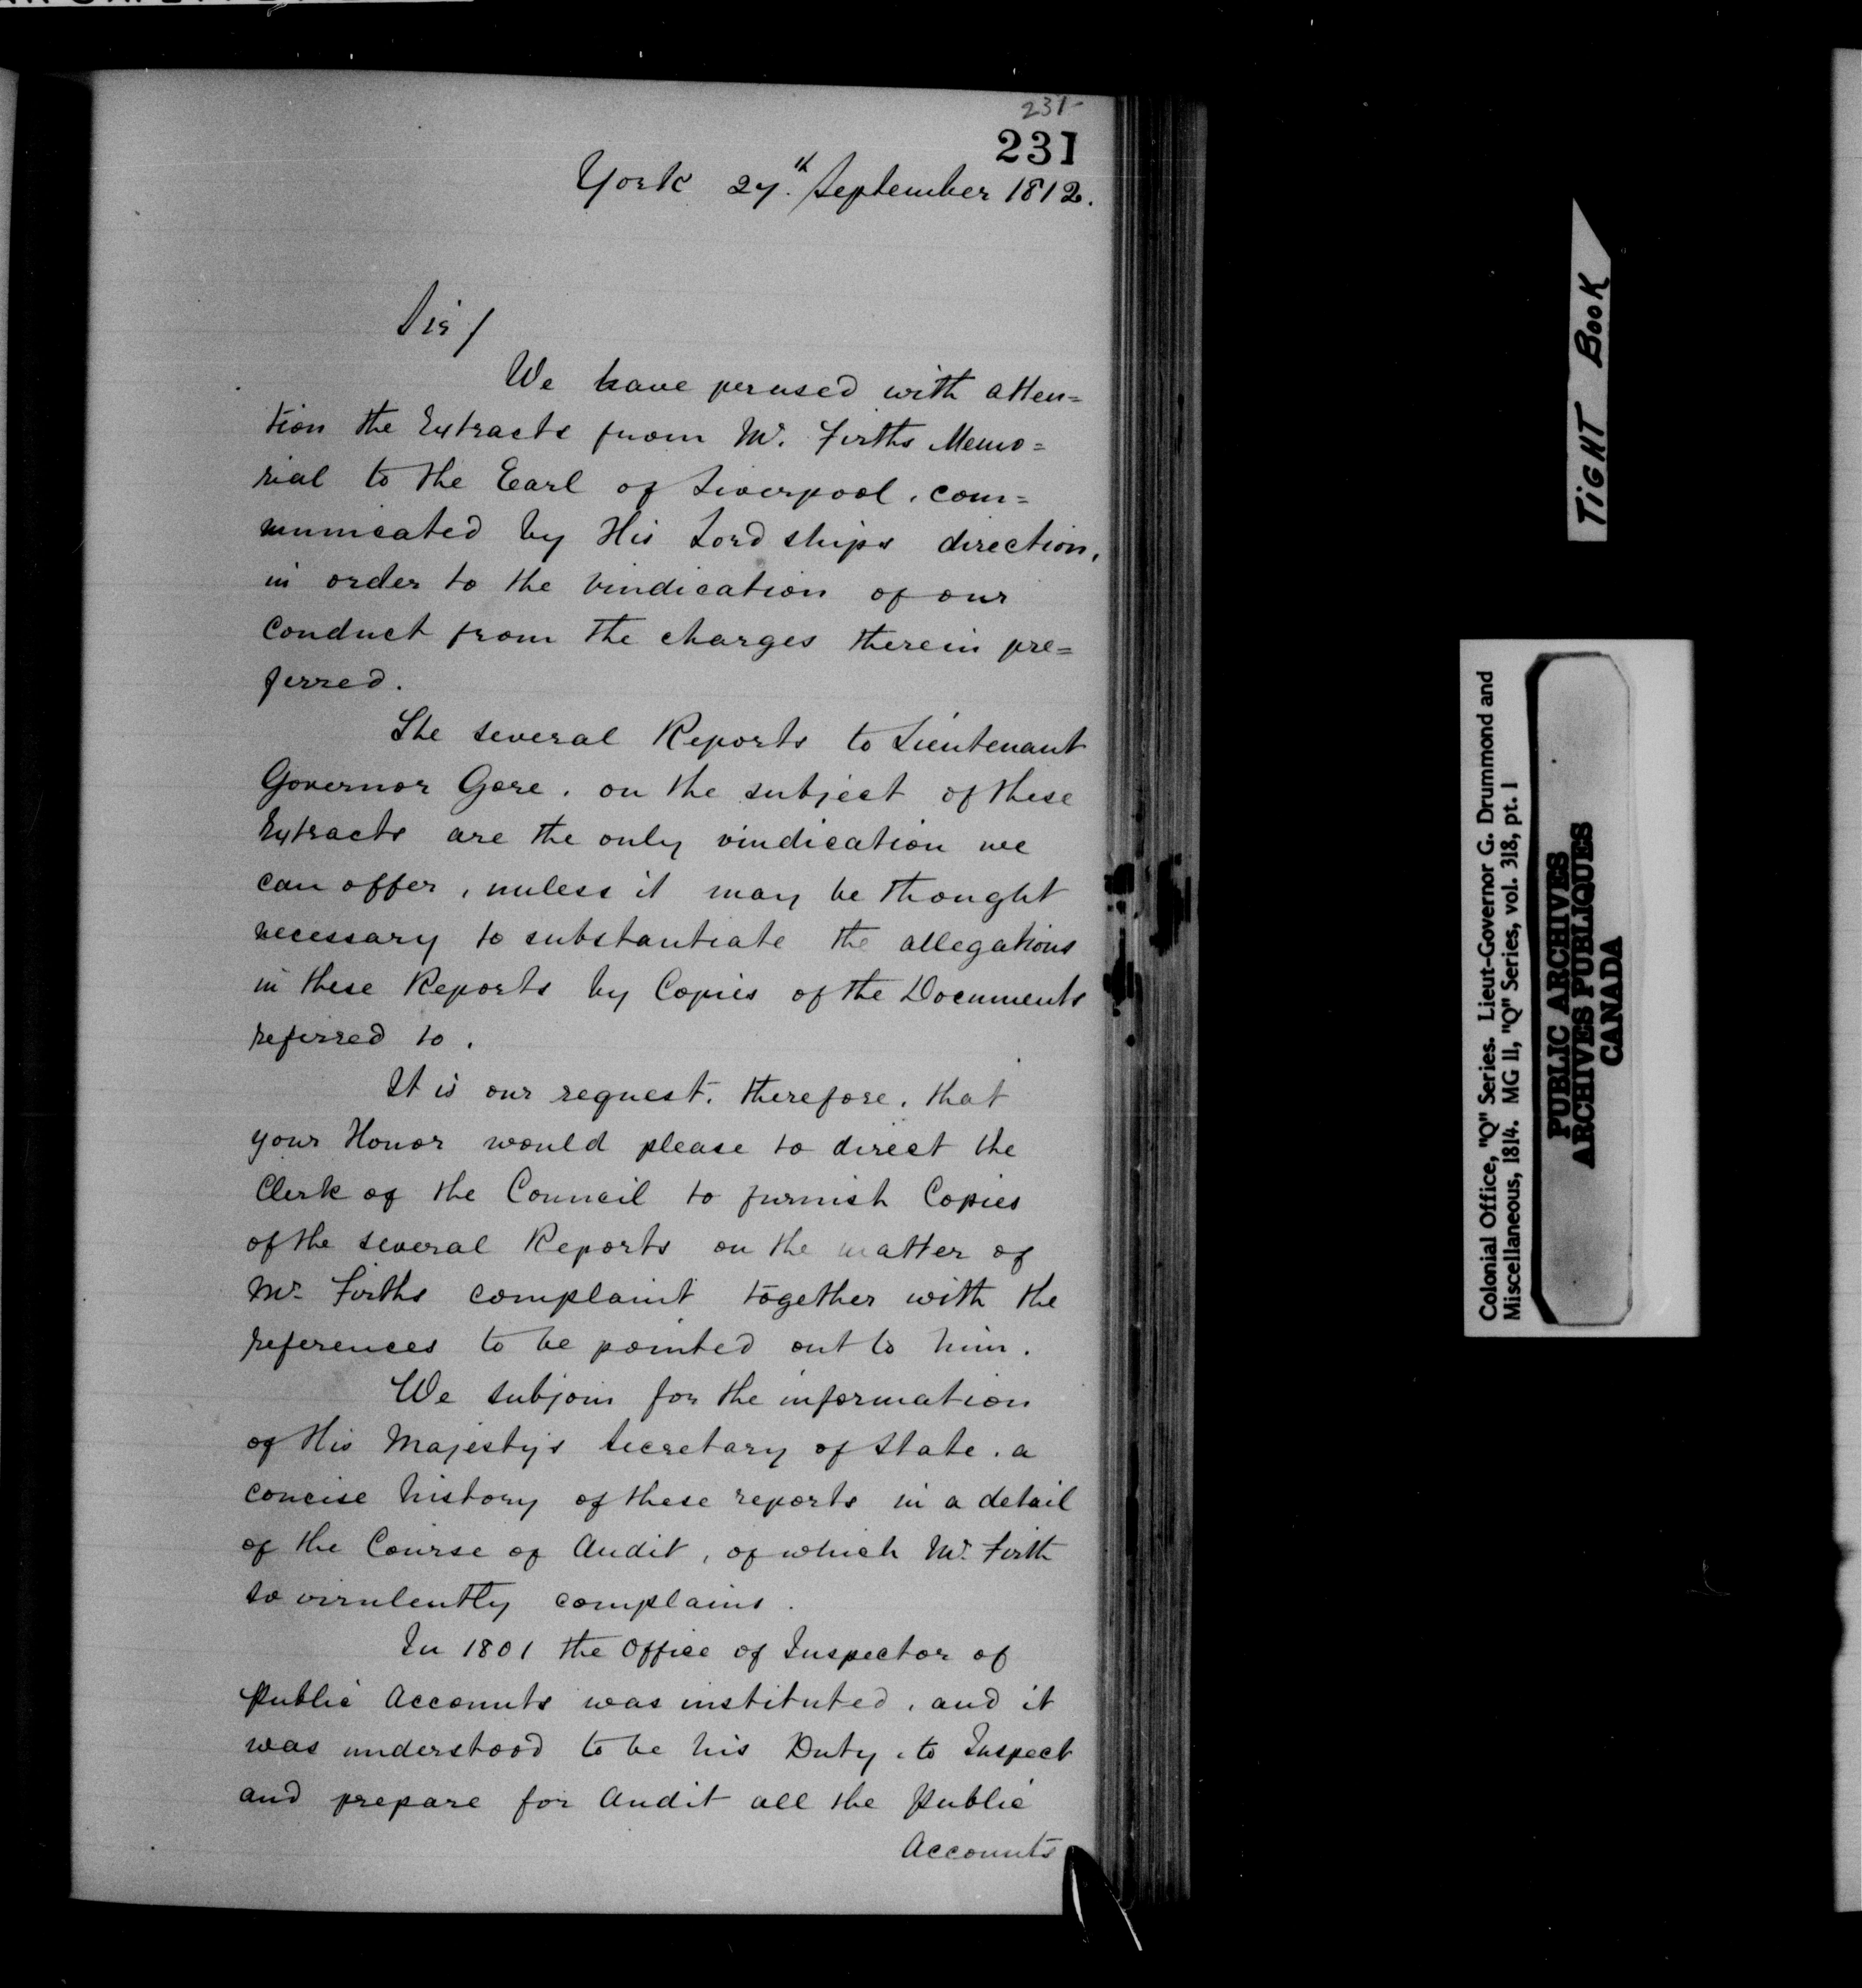 231
231
York 27th September 1812.
Sir/
We have perused with atten=
tion the Extracts from Mr. Firths Memo=
rial to the Earl of Liverpool, com=
municated by His Lordships direction,
in order to the vindication of our
conduct from the charges therein pre=
ferred.
The several Reports to Lieutenant
Governor Gore, on the subject of these
Extracts are the only vindication we
can offer, unless it may be thought
necessary to substantiate the allegations
in these Reports by Copies of the Documents
referred to.
It is our request, therefore, that
your Honor would please to direct the
Clerk of the Council to furnish Copies
of the several Reports on the matter of
Mr. Firths complaint together with the
references to be pointed out to him.
We subjoin for the information
of His Majesty's Secretary of State, a
concise history of these reports in a detail
of the Course of Audit, of which Mr. Firth
so virulently complains.
In 1801 the Office of Inspector of
Public Accounts was instituted, and it
was understood to be his Duty, to Inspect
and prepare for Audit all the Public
Accounts
TIGHT BOOK
Colonial Office, "Q" Series. Lieut-Governor G. Drummond and
Miscellaneous, 1814. MG 11, "Q" Series, vol. 318, pt. 1
PUBLIC ARCHIVES
ARCHIVES PUBLIQUES
CANADA